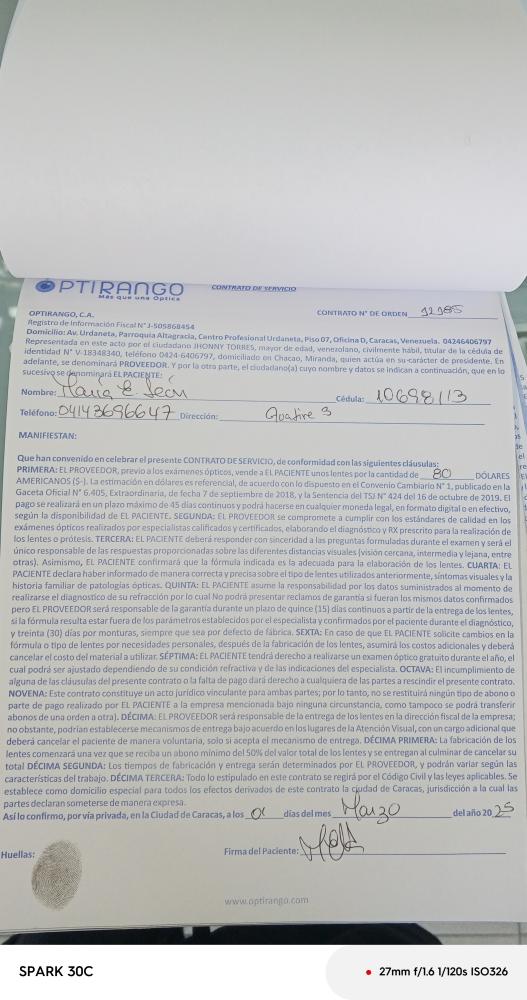 OPTIRANGO
Más que una Óptica
CONTRATO DE SERVICIO
CONTRATO N° DE ORDEN
OPTIRANGO, C.A.
Registro de Información Fiscal N° J-505868454
Domicilio: Av. Urdaneta, Parroquia Altagracia, Centro Profesional Urdaneta, Piso 07, Oficina D, Caracas, Venezuela. 04246406797
Representada en este acto por el ciudadano JHONNY TORRES, mayor de edad, venezolano, civilmente hábil, titular de la cédula de
identidad N° V-18348340, teléfono 0424-6406797, domiciliado en Chacao, Miranda, quien actúa en su carácter de presidente. En
adelante, se denominará PROVEEDOR. Y por la otra parte, el ciudadano(a) cuyo nombre y datos se indican a continuación, que en lo
sucesivo se denominará EL PACIENTE:
Nombre: María E León Cédula: 10698113
Teléfono: 04143696647 Dirección: 3
MANIFIESTAN:
Que han convenido en celebrar el presente CONTRATO DE SERVICIO, de conformidad con las siguientes cláusulas:
PRIMERA: EL PROVEEDOR, previo a los exámenes ópticos, vende a EL PACIENTE unos lentes por la cantidad de 80 DÓLARES
AMERICANOS ($-). La estimación en dólares es referencial, de acuerdo con lo dispuesto en el Convenio Cambiario N° 1, publicado en la
Gaceta Oficial N° 6.405, Extraordinaria, de fecha 7 de septiembre de 2018, y la Sentencia del TSJ N° 424 del 16 de octubre de 2019. El
pago se realizará en un plazo máximo de 45 días continuos y podrá hacerse en cualquier moneda legal, en formato digital o en efectivo,
según la disponibilidad de EL PACIENTE. SEGUNDA: EL PROVEEDOR se compromete a cumplir con los estándares de calidad en los
exámenes ópticos realizados por especialistas calificados y certificados, elaborando el diagnóstico y RX prescrito para la realización de
los lentes o prótesis. TERCERA: EL PACIENTE deberá responder con sinceridad a las preguntas formuladas durante el examen y será el
único responsable de las respuestas proporcionadas sobre las diferentes distancias visuales (visión cercana, intermedia y lejana, entre
otras). Asimismo, EL PACIENTE confirmará que la fórmula indicada es la adecuada para la elaboración de los lentes. CUARTA: EL
PACIENTE declara haber informado de manera correcta y precisa sobre el tipo de lentes utilizados anteriormente, síntomas visuales y la
historia familiar de patologías ópticas. QUINTA: EL PACIENTE asume la responsabilidad por los datos suministrados al momento de
realizarse el diagnostico de su refracción por lo cual No podrá presentar reclamos de garantía si fueran los mismos datos confirmados
pero EL PROVEEDOR será responsable de la garantía durante un plazo de quince (15) días continuos a partir de la entrega de los lentes,
si la fórmula resulta estar fuera de los parámetros establecidos por el especialista y confirmados por el paciente durante el diagnóstico,
y treinta (30) días por monturas, siempre que sea por defecto de fábrica. SEXTA: En caso de que EL PACIENTE solicite cambios en la
fórmula o tipo de lentes por necesidades personales, después de la fabricación de los lentes, asumirá los costos adicionales y deberá
cancelar el costo del material a utilizar. SÉPTIMA: EL PACIENTE tendrá derecho a realizarse un examen óptico gratuito durante el año, el
cual podrá ser ajustado dependiendo de su condición refractiva y de las indicaciones del especialista. OCTAVA: El incumplimiento de
alguna de las cláusulas del presente contrato o la falta de pago dará derecho a cualquiera de las partes a rescindir el presente contrato.
NOVENA: Este contrato constituye un acto jurídico vinculante para ambas partes; por lo tanto, no se restituirá ningún tipo de abono o
parte de pago realizado por EL PACIENTE a la empresa mencionada bajo ninguna circunstancia, como tampoco se podrá transferir
abonos de una orden a otra). DÉCIMA: EL PROVEEDOR será responsable de la entrega de los lentes en la dirección fiscal de la empresa;
no obstante, podrían establecerse mecanismos de entrega bajo acuerdo en los lugares de la Atención Visual, con un cargo adicional que
deberá cancelar el paciente de manera voluntaria, solo si acepta el mecanismo de entrega. DÉCIMA PRIMERA: La fabricación de los
lentes comenzará una vez que se reciba un abono mínimo del 50% del valor total de los lentes y se entregan al culminar de cancelar su
total DÉCIMA SEGUNDA: Los tiempos de fabricación y entrega serán determinados por EL PROVEEDOR, y podrán variar según las
características del trabajo. DÉCIMA TERCERA: Todo lo estipulado en este contrato se regirá por el Código Civil y las leyes aplicables. Se
establece como domicilio especial para todos los efectos derivados de este contrato la ciudad de Caracas, jurisdicción a la cual las
partes declaran someterse de manera expresa.
Así lo confirmo, por vía privada, en la Ciudad de Caracas, a los 01 días del mes Marzo del año 2025
Huellas: Firma del Paciente:
www.optirango.com
SPARK 30C
27mm f/1.6 1/120s ISO326